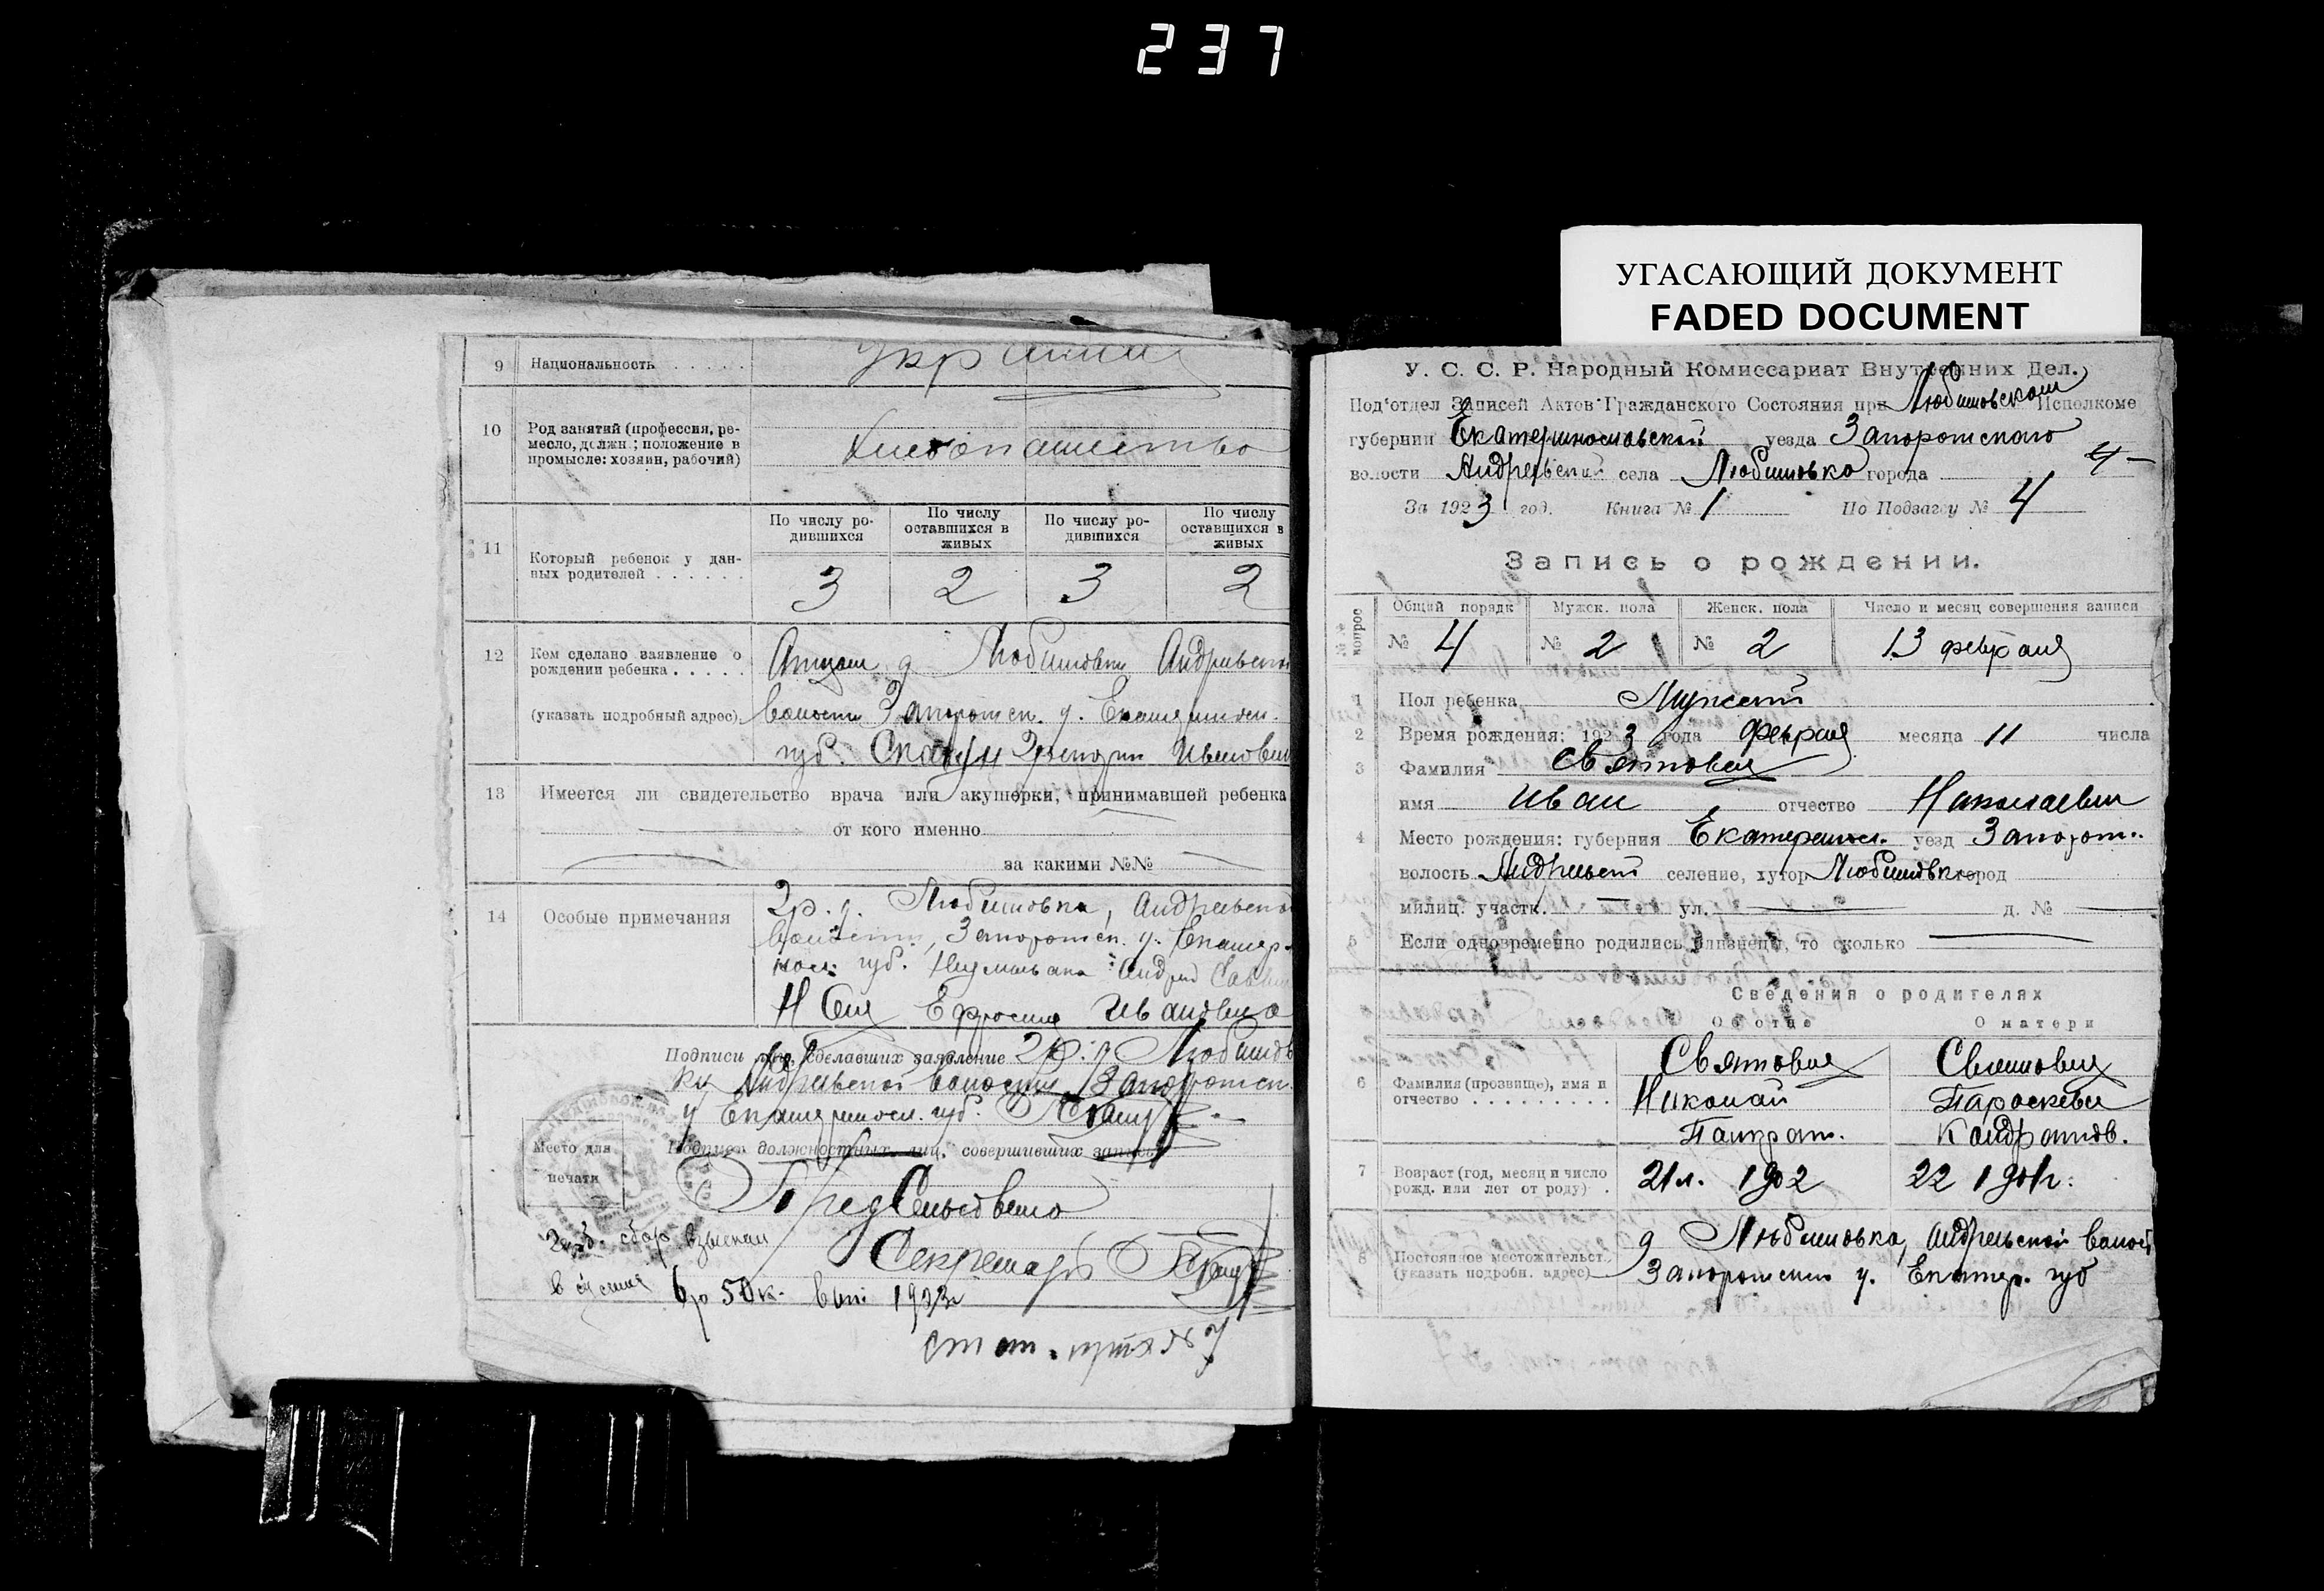 237
УГАСАЮЩИЙ ДОКУМЕНТ
FADED DOCUMENT
9 Национальность
10 Род занятий (профессия, ре-
месло, должн.; положение в
промысле: хозяин, рабочий)
По числу ро-
дившихся
По числу
оставшихся в
живых
По числу ро-
дившихся
По числу
оставшихся в
живых
11 Который ребенок у дан-
ных родителей
3 2 3 2
12 Кем сделано заявление о
рождении ребенка
(указать подробный адрес)
Отцом д Любимовки Андреевской
волости Запорожск. у. Екатериносл.
губ. Григорий Иванович
13 Имеется ли свидетельство врача или акушерки, принимавшей ребенка
от кого именно
за какими №№
14 Особые примечания
Гр. д. Любимовка, Андреевской
волости, Запорожск. у. Екатер-
носл. губ. Андрей
Ефросиня Ивановна
Подписи лиц, сделавших заявление Гр. д Любимов
ки Андреевской волости Запорожск.
у Екатериносл. губ.
Подписи должностных лиц, совершивших запись
Место для
печати
Пред Сельсовета
Секретарь
Герб. сбор взыскан
в сумме 6 р 50 к. 1923 г
У. С. С. Р. Народный Комиссариат Внутренних Дел.
Под'отдел Записей Актов Гражданского Состояния при Любимовском Исполкоме
губернии Екатеринославской уезда Запорожского
волости Андреевской села Любимовка города
4 —
За 1923 год. Книга № 1 По Подзагсу № 4
Запись о рождении.
№№ вопрос
Общий порядк Мужск. пола Женск. пола Число и месяц совершения записи
№ 4 № 2 № 2 13 февраля
1 Пол ребенка Мужской
2 Время рождения: 1923 года Февраля месяца 11 числа
3 Фамилия Святовец
имя Иван, отчество Николаевич
4 Место рождения: губерния Екатериносл. уезд Запорож.
волость Андреевск селение, хутор Любимовка город
милиц. участк. — ул. — д. № —
5 Если одновременно родились близнецы, то сколько —
Сведения о родителях
Об отце О матери
6 Фамилия (прозвище), имя и
отчество
Святовец
Николай
Панкрат.
Святовец
Параскева
Кандратов.
7 Возраст (год, месяц и число
рожд. или лет от роду)
21 л. 1902 22 1901 г.
8 Постоянное местожительст.
(указать подробн. адрес)
д Любимовка, Андреевской волост
Запорожского у. Екатер. губ